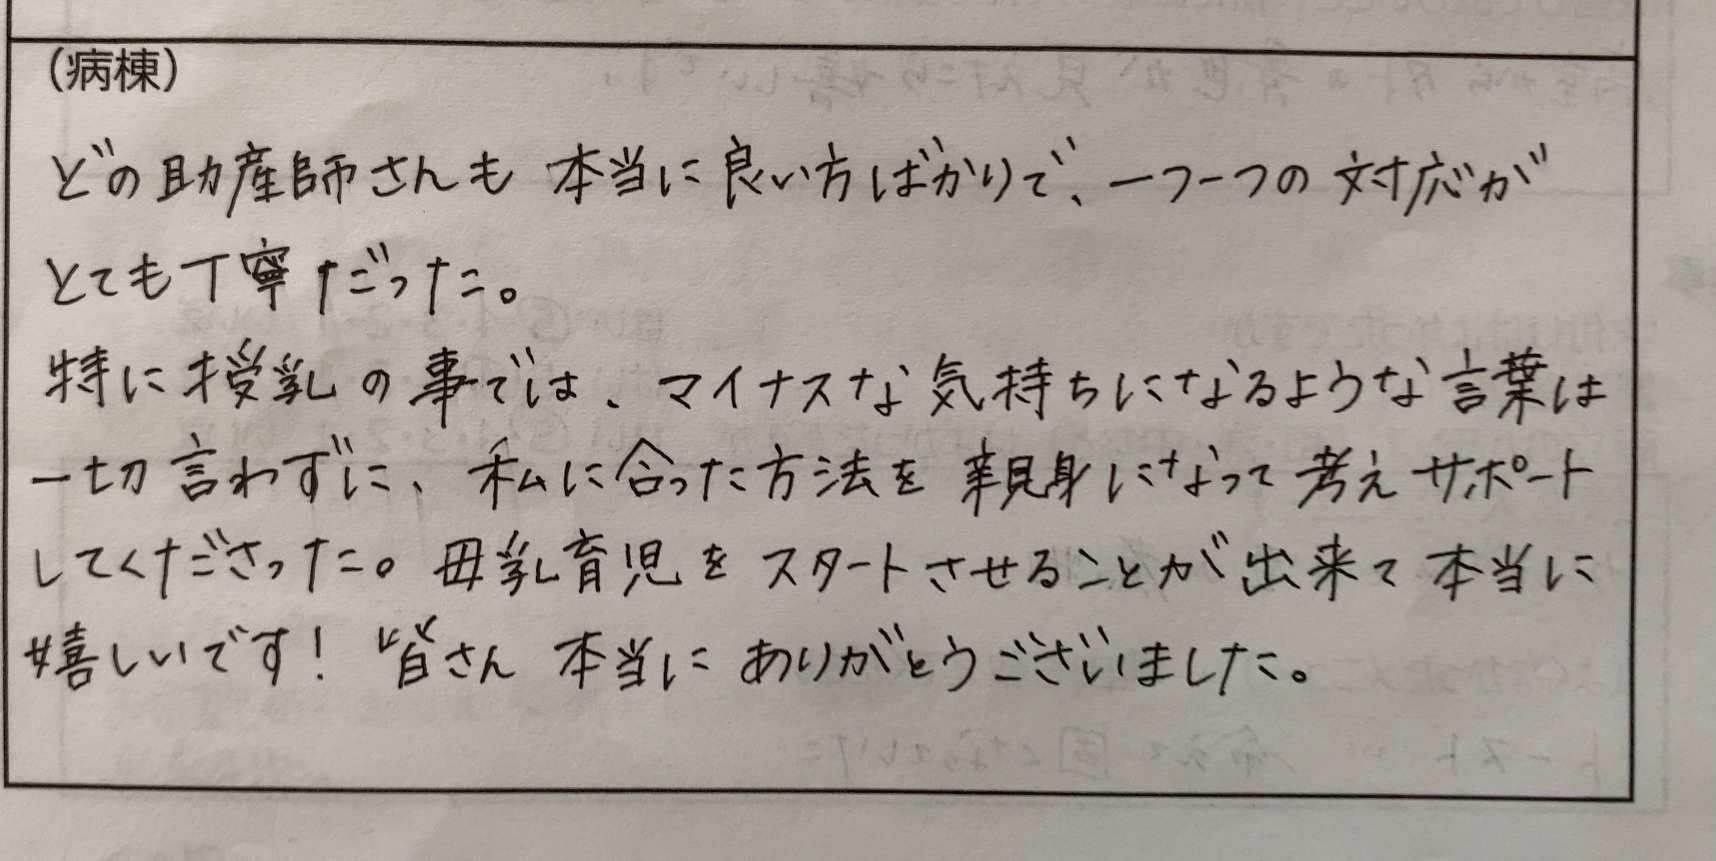 (病棟)
どの助産師さんも 本当に良い方ばかりで、一つ一つの 対応が
とても丁寧だった。
特に授乳の事では、マイナスな気持ちになるような言葉は
一切言わずに、私に合った方法を親身になって考えサポート
してくださった。母乳育児をスタートさせることが出来て本当に
嬉しいです! 皆さん 本当にありがとうございました。